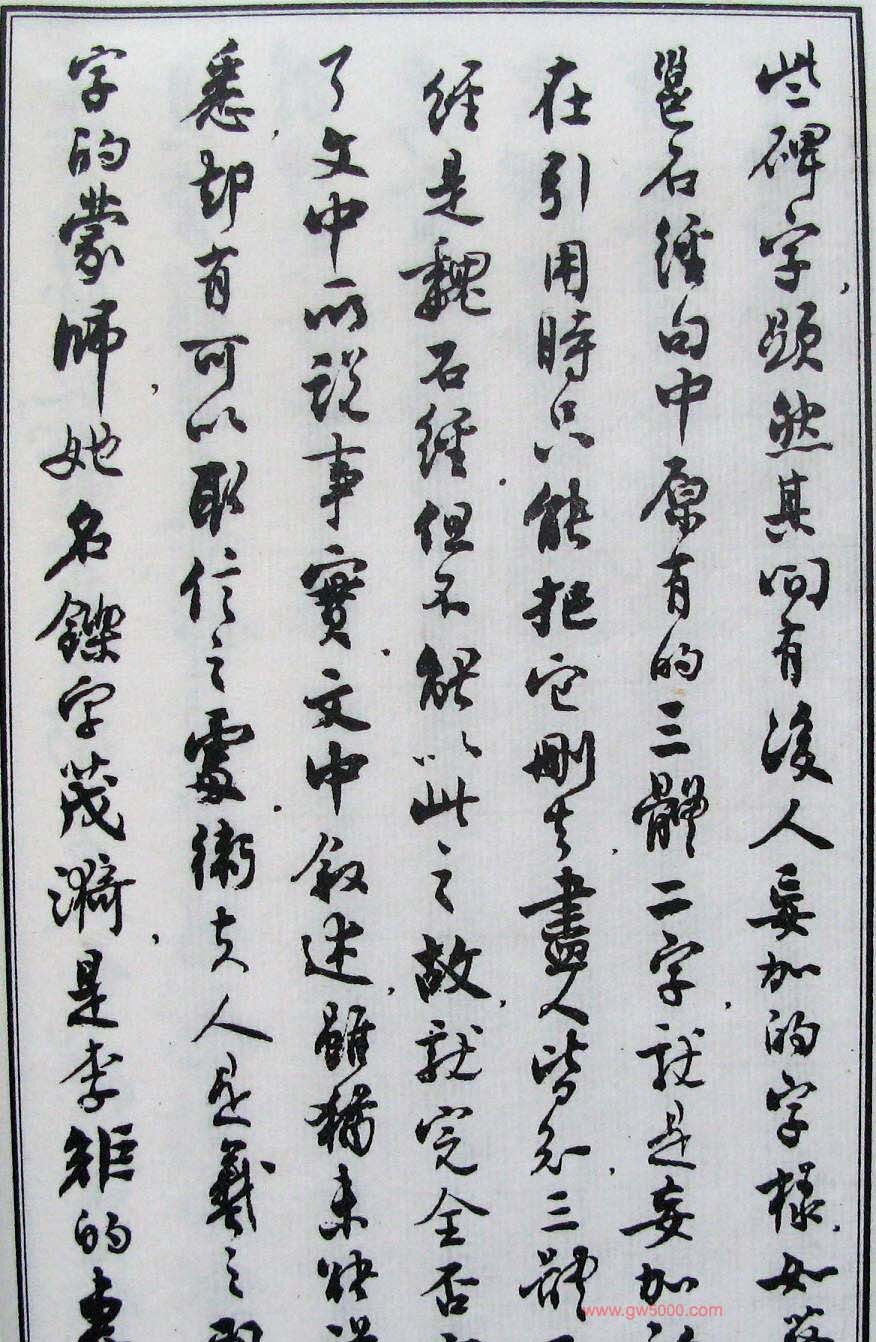 些碑字,顯然其間有後人妄加的字樣,如蔡
邕石經句中原有的三體二字,就是妄加
在引用時,只能把它刪去,盡人皆知,三體
經是魏石經,但不能以此之故,就完全否
了文中所說事實,文中敘述,雖猶未能
悉,却有可以取信之處,衛夫人是羲之
字的蒙師,她名鑠字茂漪,是李矩的
www.gw5000.com